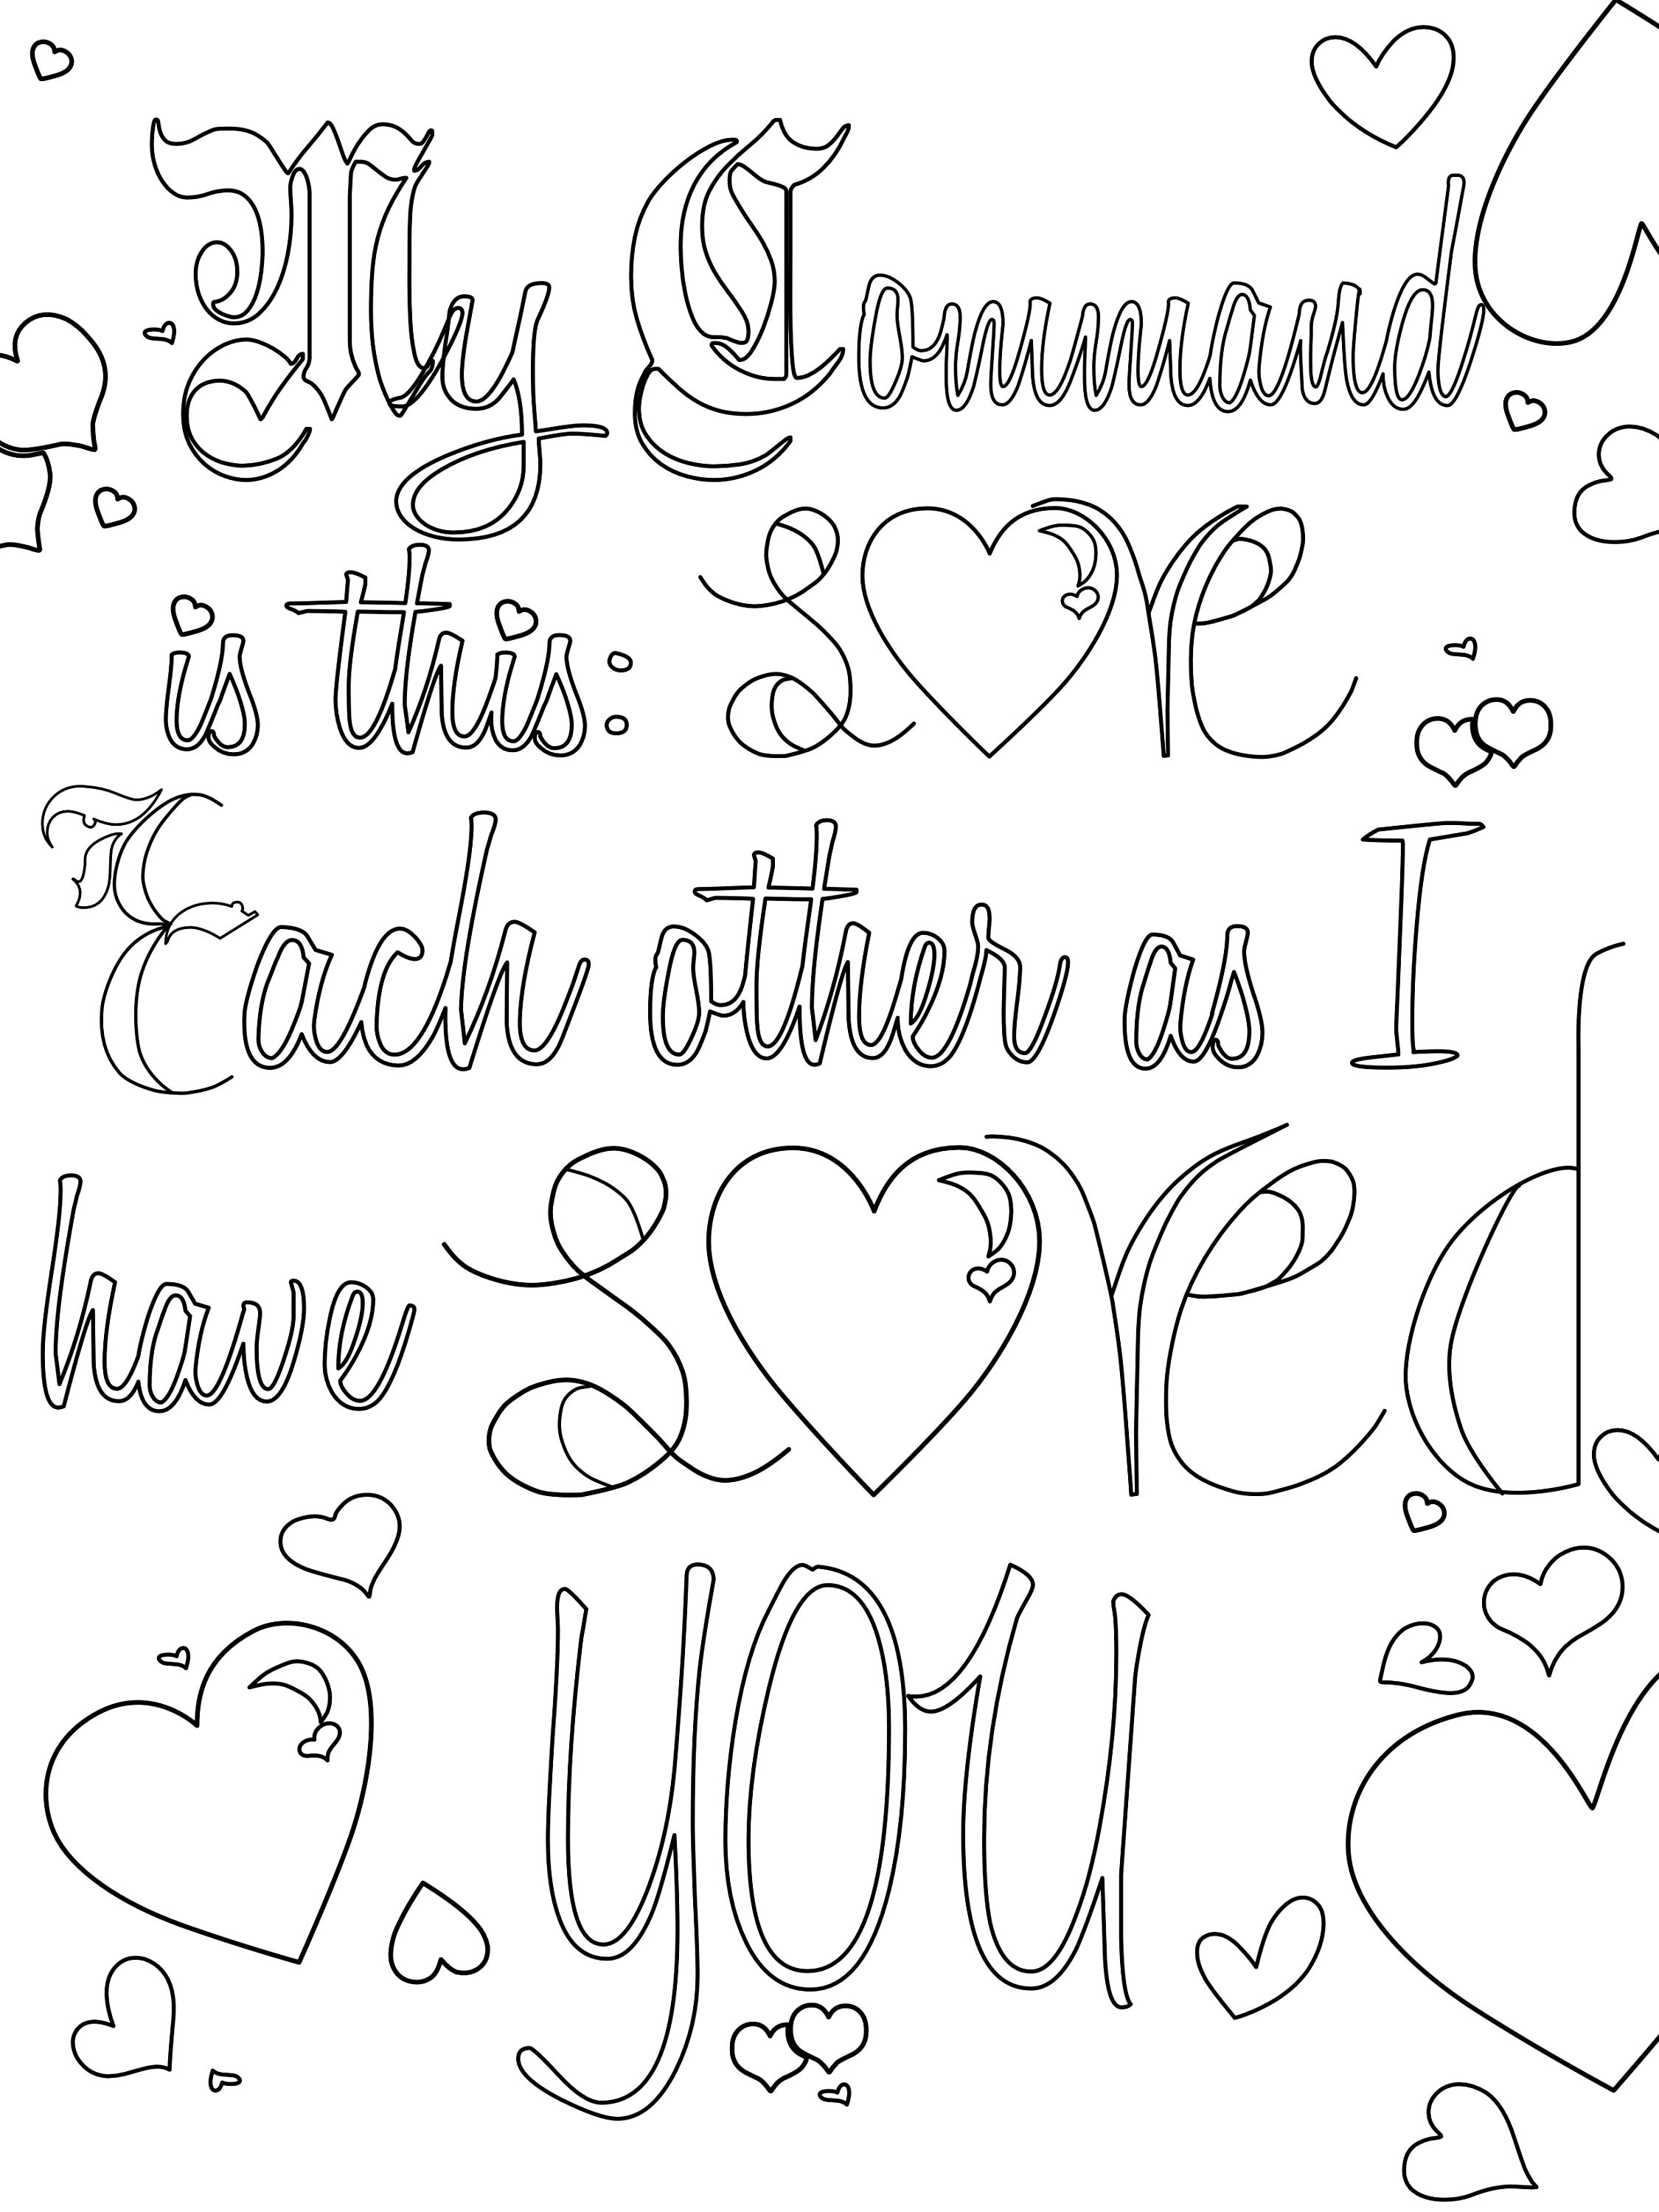 My Command
is this: Love
Each other as I
have Loved
you